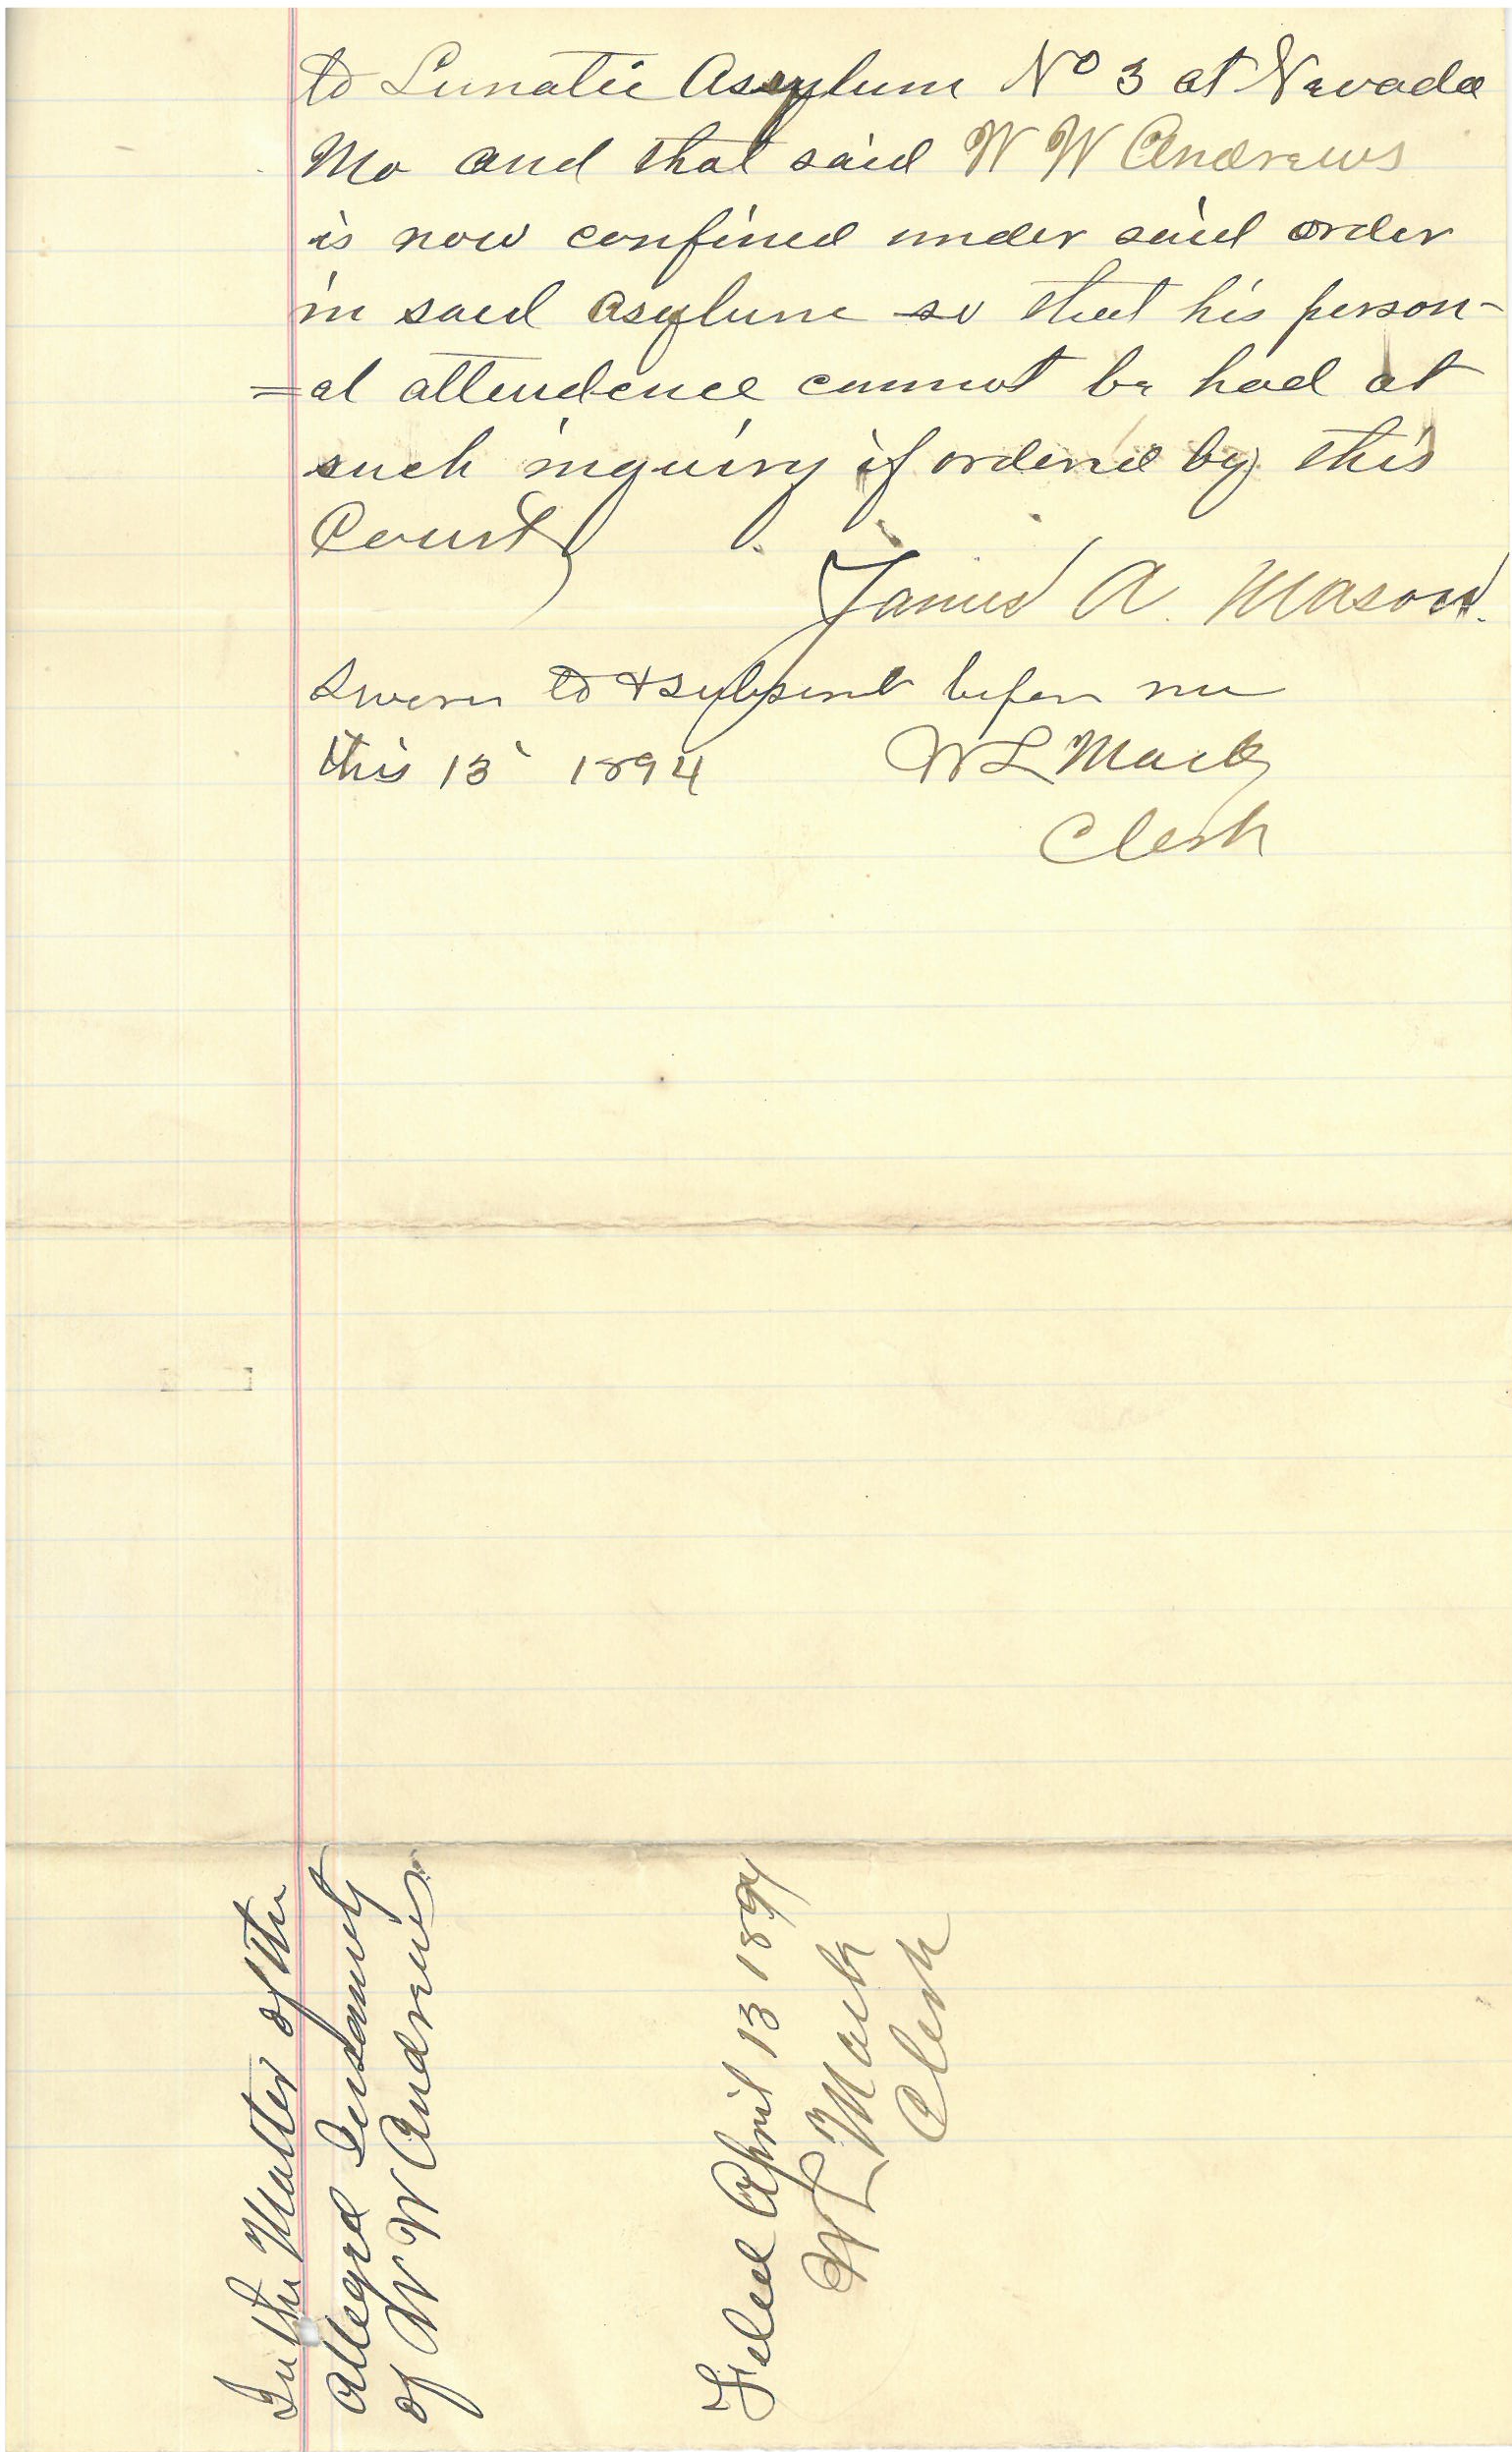 to Lunatic Asylum No 3 at Nevada
Mo and that said W W Andrews
is now confined under said order
in said asylum so that his person-
=al attendence cannot be had at
such inquiry if ordered by this
Court
James A. Mason.
Sworn to & subscribed before me
this 13 1894
W L Mack
Clerk
In the Matter of the
alleged Insanity
of W W Andrews
Filed April 13 1894
W L Mack
Clerk